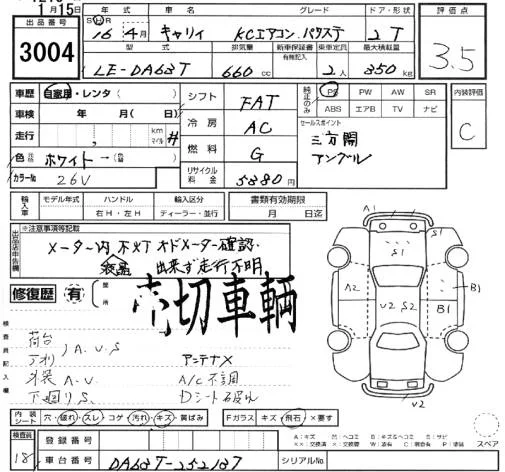 1月15日
出品番号 3004
年式 車名 グレード ドア・形状
SH 16年 4月 キャリィ KCエアコン.パワステ 2 T
型式 排気量 新車保証書 有無記入 乗車定員 最大積載量
LE-DA63T 660cc 2人 350kg
評価点
3.5
車歴 自家用・レンタ( )
車検 年 月( 日)
走行 , km マイル #
色 ホワイト→
カラーNo 26V
シフト FAT
冷房 AC
燃料 G
リサイクル料金 5880円
純正のみ PS PW AW SR
ABS エアB TV ナビ
セールスポイント
三方開
アングル
内装評価
C
輸入車 モデル年式 ハンドル 輸入区分
右H・左H ディーラー・並行
書類有効期限
月 日迄
※注意事項等記載
メーター内 不灯 オドメーター確認
液晶 出来ず走行不明
修復歴 有 箇所
売切車輌
検査員記入欄
荷台
アオリ A.U.S
外装 A.U
下廻りS
アンテナX
A/C不調
Dシート破れ
A1 S1
S1
A2 U2 S2 B1 B1
U2
内装シート 穴・破れ・スレ・コゲ・汚れ・キズ・黄ばみ
Fガラス キズ・飛石・×要す
スペア
検査員 18
登録番号
車台番号 DA63T-252137
シリアルNo